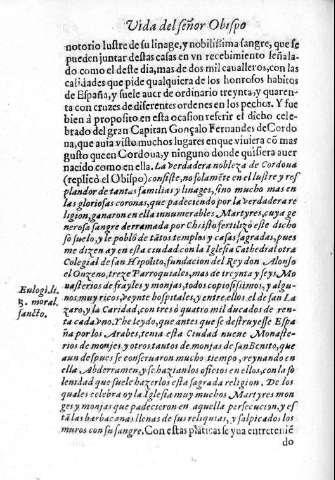 Vida del señor Obispo
notorio lustre de su linage, y nobilissima sangre, que se
pueden juntar destas casas en vn recebimiento señala-
do como el deste dia, mas de dos mil caualleros, con las
calidades que pide qualquiera de los honrosos habitos
de España, y suele auer de ordinario treynta, y quaren-
ta con cruzes de diferentes ordenes en los pechos. Y fue
bien à proposito en esta ocasion referir el dicho cele-
brado del gran Capitan Gonçalo Fernandes de Cordo
na, que auia visto muchos lugares en que viuiera cō mas
gusto que en Cordoua, y ninguno donde quisiera auer
nacido como en ella. La verdadera nobleza de Cordoua
(replicó el Obispo) consiste, no solamēte en el lustre y res-
plandor de tantas familias y linages, sino mucho mas en
las gloriosas coronas, que padeciendo por la verdadera re
ligion, ganaron en ella innumerables Martyres, cuya ge
nerosa sangre derramada por Christo fertilizó este dicho
so suelo, y le pobló de tātos templos y casas sagradas, pues
me dizen ay en esta ciudad con la Iglesia Cathedral otra
Colegial de san Hipolito, fundacion del Rey don Alonso
el Onzeno, treze Parroquiales, mas de treynta y seys Mo
nasterios de frayles y monjas, todos copiosissimos, y algu-
nos muy ricos, veynte hospitales, y entre ellos el de san La
zaro, y la Caridad, con tres ò quatro mil ducados de ren-
ta cada vno. Yhe leydo, que antes que se destruyesse Espa
ña por los Arabes, tenia esta Ciudad nueue Monaste-
rios de monjes, y otros tantos de monjas de san Benito, que
aun despues se conseruaron mucho tiempo, reynando en
ella Abderramen, y se hazian los oficios en ellos, con la so
lenidad que suele hazerlos esta sagrada religion. De los
quales celebra oy la Iglesia muy muchos Martyres mon
ges y monjas que padecieron en aquella persecucion, y es
tā las barbacanas llenas de sus reliquias, y salpicados los
muros con su sangre. Con estas platicas se yua entretenié
do
Eulogi. li.
3. moral.
sancto.